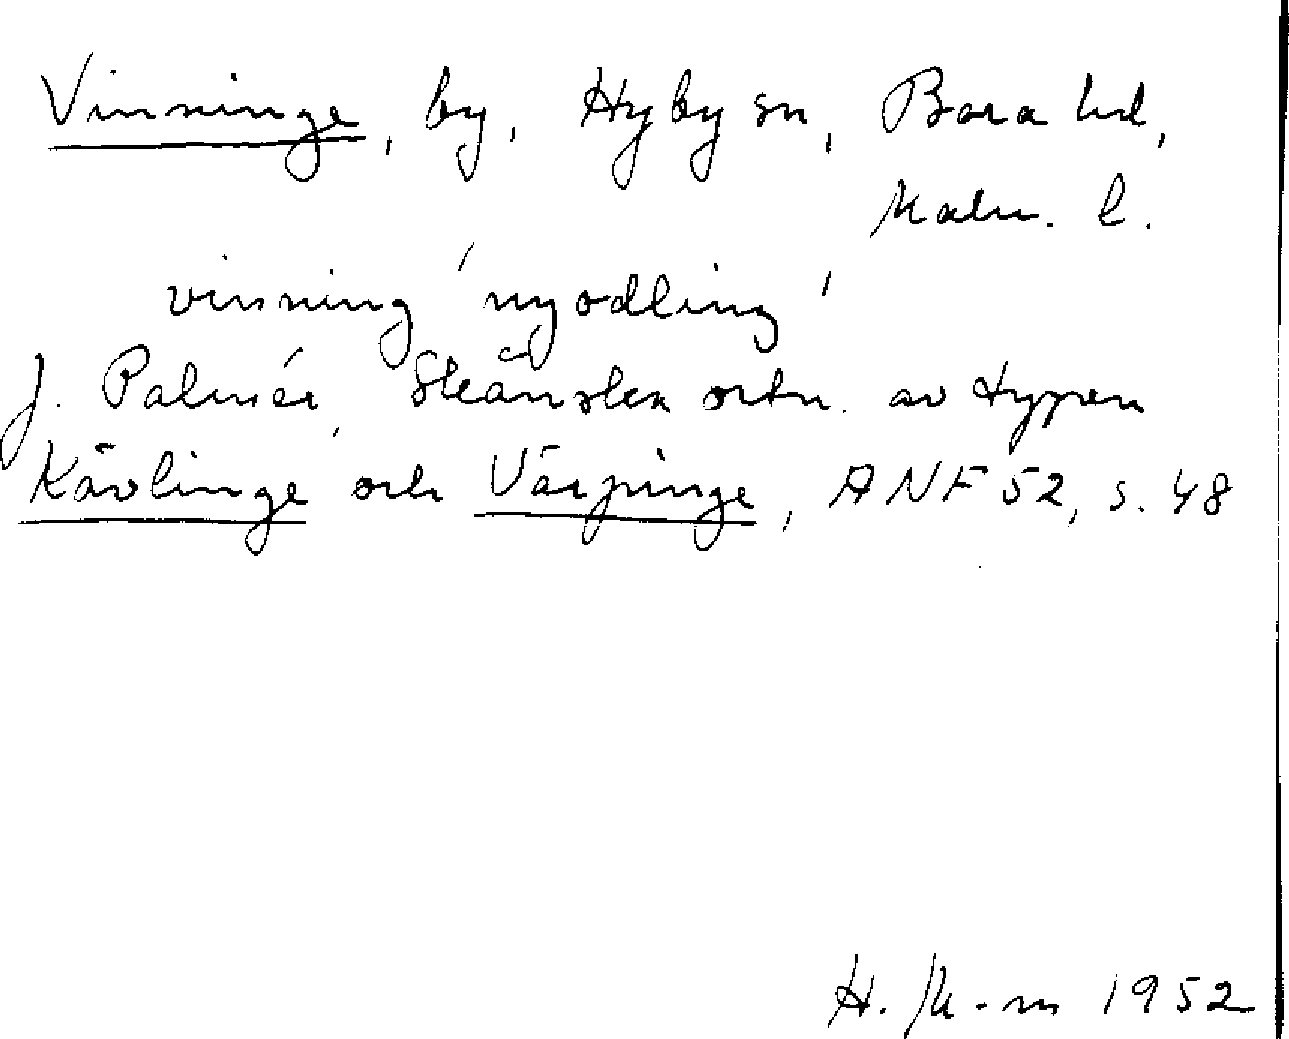 Vinninge, by, Hyby sn, Bara hd,
Malm. l.
vinning 'nyodling'
J. Palmér, Skånska ortn. av typen
Kävlinge och Värpinge, ANF 52, s. 48
H. M-m 1952